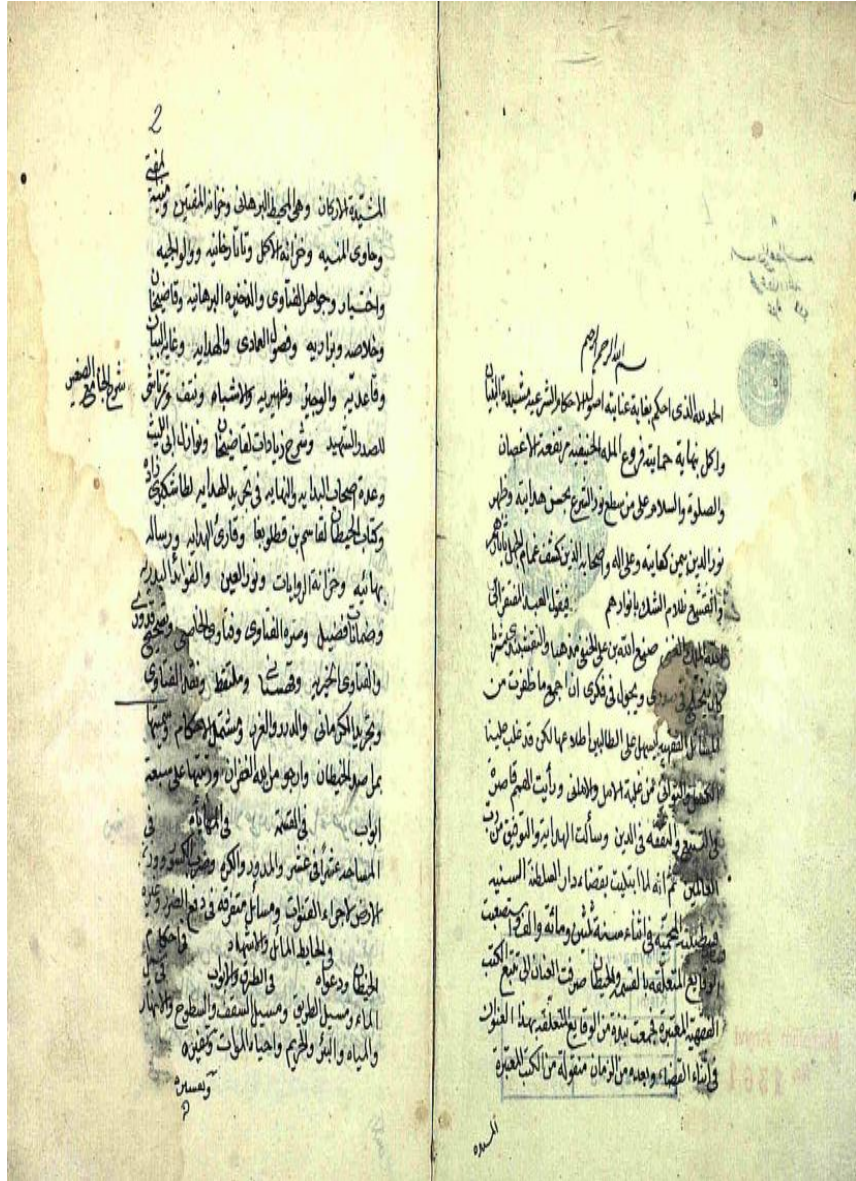 بسم الله الرحمن الرحيم
الحمد لله الذى احكم بغاية عنايته اصول الاحكام الشرعيه مشيدة البنيان
واكمل بنهاية حمايته فروع المله الحنيفيه مرتفعة الاغصان
والصلوة والسلام على من سطع نور الشرع بحسن هدايته وظهر
نور الدين بيمن كفايته وعلى اله واصحابه الذين كشف غمام الجهل
وانقشع ظلام الشك بانوارهم فيقول العبد المفتقر الى
الله الملك الغنى صنع الله بن على الحنفى مذهبا والنقشبندى مشربا
كان يختلج فى صدرى ويجول فى فكرى ان اجمع ما ظفرت من
المسائل الفقهيه ليسهل على الطالبين اطلاعها لكن قد غلب علينا
الكسل والتوانى من غلبة الامل والامانى ورأيت الهمم قاصرة
فى التتبع والتفقه فى الدين وسألت الهداية والتوفيق من رب
العالمين ثم انه لما ابتليت بقضاء دار السلطنة السنيه
قسطنطينية المحميه فى اثناء سنة ثلثين ومائة والف استصعبت
الوقايع المتعلقه بالقسمه والحيطان صرفت العنان الى تتبع الكتب
الفقهية المعتبرة فجمعت نبذة من الوقايع المتعلقه بهذا العنوان
فى اثناء القضاء وبعده من الزمان منقولة من الكتب المعتبرة
المشيده
2
المشيدة الاركان وهى المحيط البرهانى وخزانة المفتين ومنية المفتى
وحاوى المنيه وخزانة الاكمل وتاتارخانيه وولوالجيه
واختيار وجواهر الفتاوى والذخيره البرهانيه وقاضيخان
وخلاصه وبزازيه وفصول العمادى والهدايه وغاية البيان
وقاعديه والوجيز وظهيريه والاشباه ونتف وتمرتاشى
شرح الجامع الصغير
للصدر الشهيد وشرح زيادات لقاضيخان ونوازل ابى الليث
وعدة اصحاب البدايه والنهايه فى تجريد الهدايه لطاشكبرى زاده
وكتاب الحيطان لقاسم بن قطلوبغا وقارئ الهدايه ورساله
بهائيه وخزانة الروايات ونور العين والفوائد البدريه
وضمانات فضيل وصرة الفتاوى وفتاوى الخاصى وتصحيح قدورى
والفتاوى الخيريه وقهستانى وملتقط ونقد الفتاوى
وتجريد الكرمانى والدرر والغرر ومشتمل الاحكام وسميتها
بمراصد الحيطان وارجو من الله الغفران ورتبتها على سبعة
ابواب فى القسمه فى المهاياة فى
المساحه عشرا فى عشر والمدور والكر وضرب الكسور
الارض لاجراء القنوات ومسائل متفرقه فى دفع الضرر وغيره
فى الحايط المائل والاشهاد فى احكام
الحيطان ودعواه فى الطرق والابواب فى مسيل
الماء ومسيل الطريق ومسيل السقف والسطوح والانهار
والمياه والبئر والحريم واحياء الموات
وتفسيره